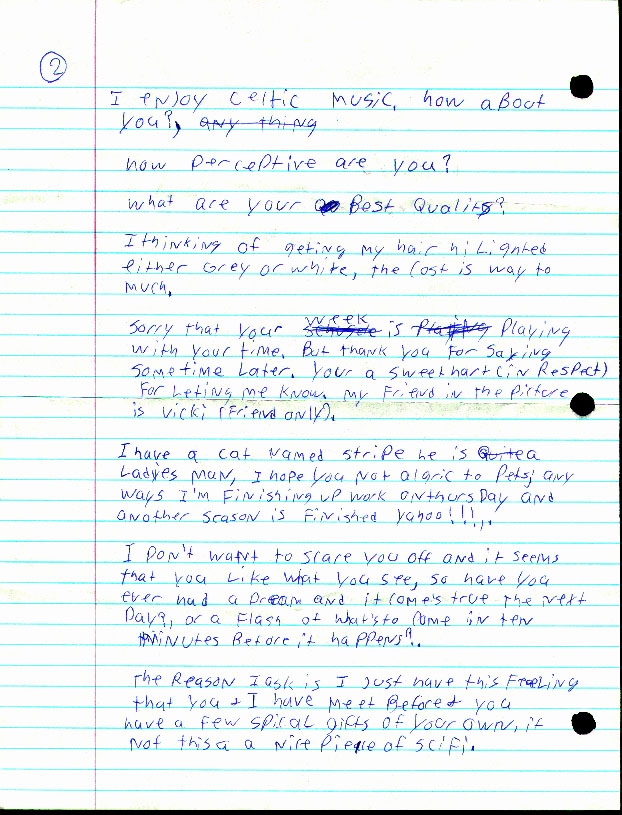 2
I enjoy Celtic music, how about
you?, any thing
how perceptive are you?
what are your Best Quality?
I thinking of geting my hair hi Lighted
either Grey or white, the Cost is way to
much.
Sorry that your week is Playing
with your time. But thank you For Saying
Some time Later. Your a sweet hart (in Respect)
For Leting me know. my Friend in the Picture
is Vicki (Friend only).
I have a cat named stripe he is Quite a
Ladyes man, I hope you not algric to Pets, any
ways I'm Finishing up work on thursDay and
another season is Finished yahoo!!!,.
I Don't want to scare you off and it seems
that you Like what you see, so have you
ever had a Dream and it come's true the next
Day?, or a Flash of what's to Come in ten
minutes Before it happens?.
The Reason I ask is I just have this Feeling
that you & I have meet Before & you
have a Few spiral gifts of your own, if
not this a a nice Piece of sciFi.